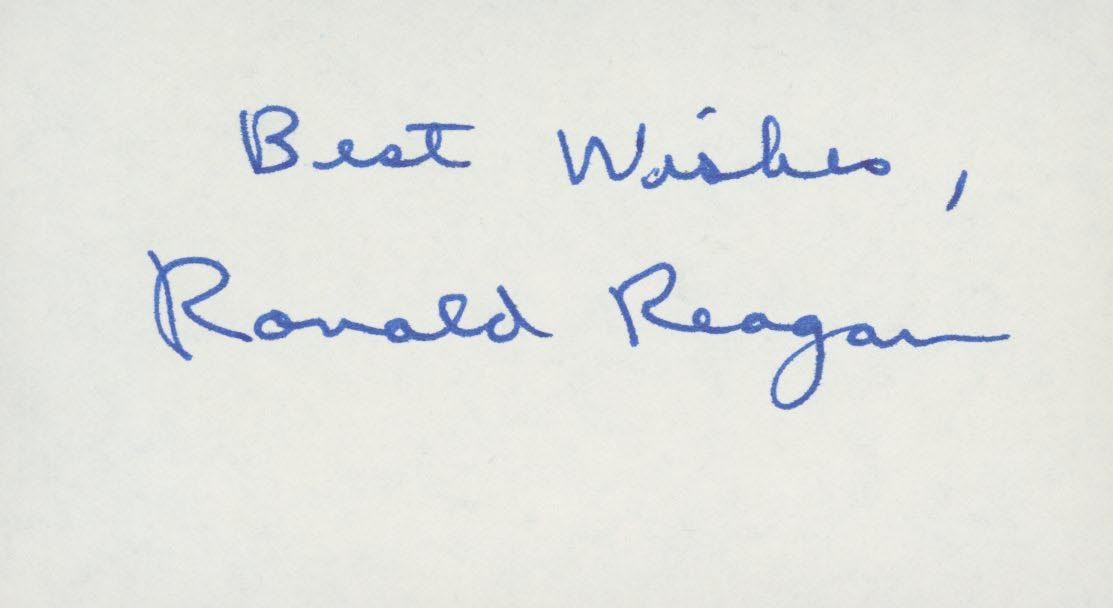 Best Wishes,
Ronald Reagan